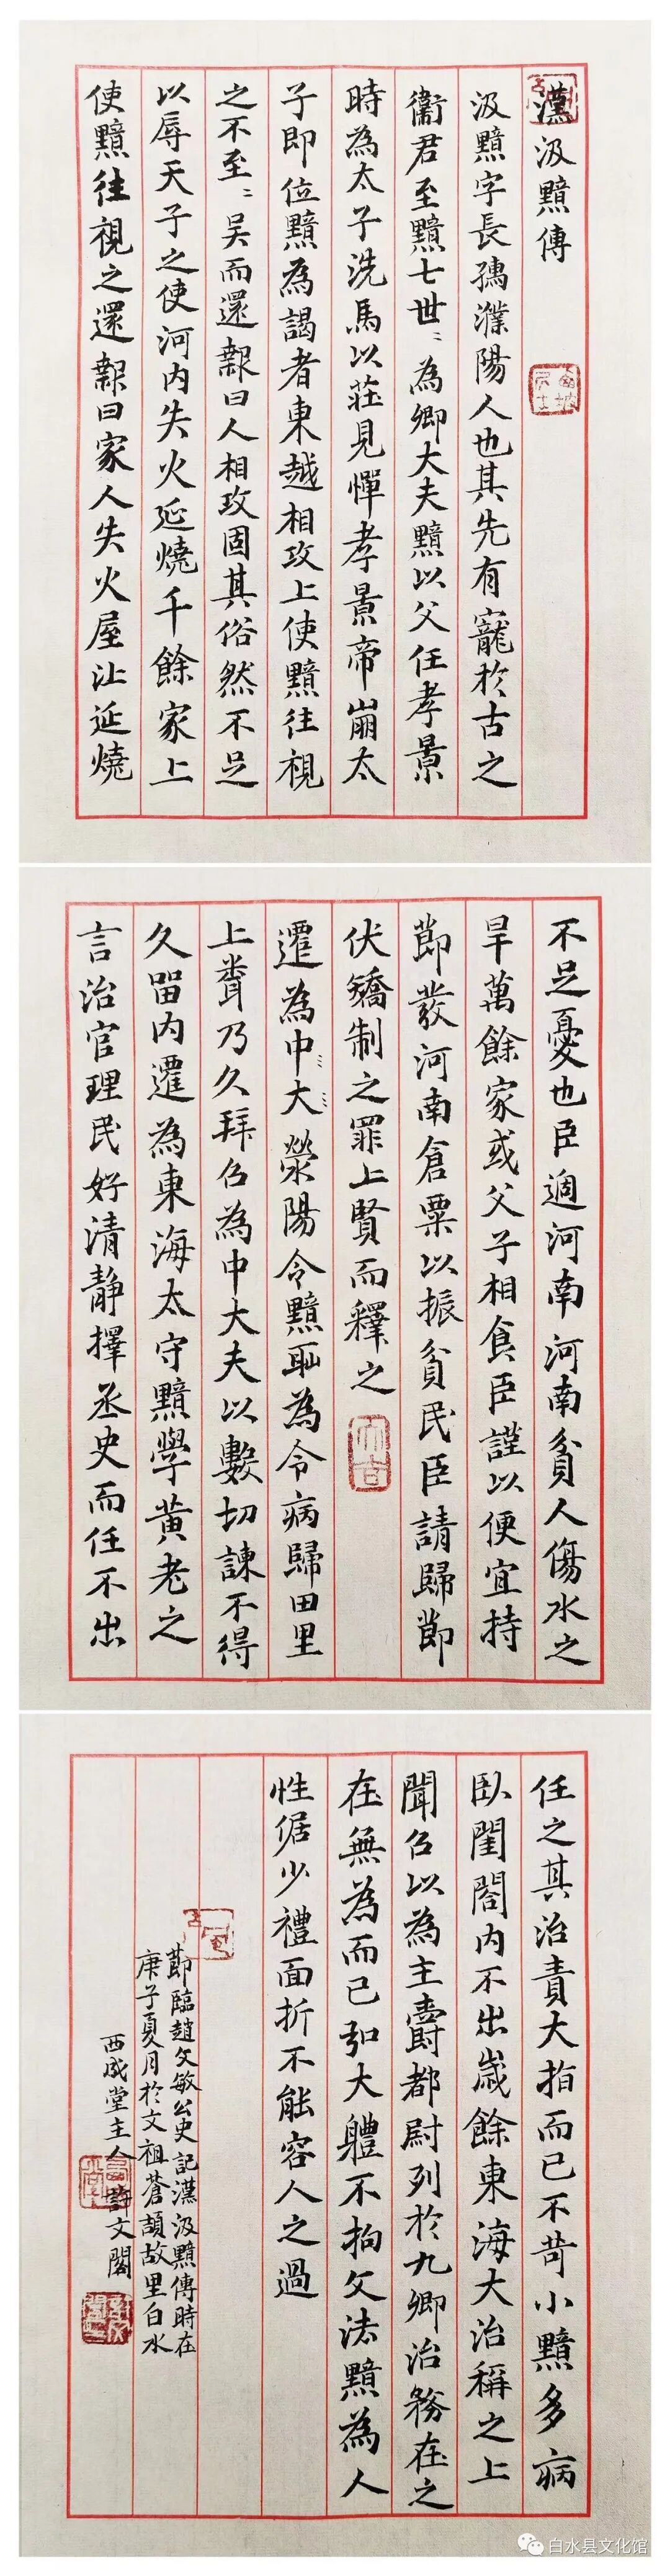 漢汲黯傳
汲黯字長孺濮陽人也其先有寵於古之
衞君至黯七世〻為卿大夫黯以父任孝景
時為太子洗馬以莊見憚孝景帝崩太
子即位黯為謁者東越相攻上使黯往視
之不至〻吴而還報曰人相攻固其俗然不足
以辱天子之使河内失火延燒千餘家上
使黯往視之還報曰家人失火屋比延燒
不足憂也臣過河南河南貧人傷水之
旱萬餘家或父子相食臣謹以便宜持
節發河南倉粟以振貧民臣請歸節
伏矯制之罪上賢而釋之
遷為中大滎陽令黯恥為令病歸田里
上聞乃久拜召為中大夫以數切諫不得
久留内遷為東海太守黯學黄老之
言治官理民好清靜擇丞史而任不出
任之其治責大指而已不苛小黯多病
臥閨閤内不出歲餘東海大治稱之上
聞召以為主爵都尉列於九卿治務在之
在無為而已弘大體不拘文法黯為人
性倨少禮面折不能容人之過
節臨趙文敏公史記漢汲黯傳時在
庚子夏月於文祖蒼頡故里白水
西成堂主人許文閣
白水县文化馆